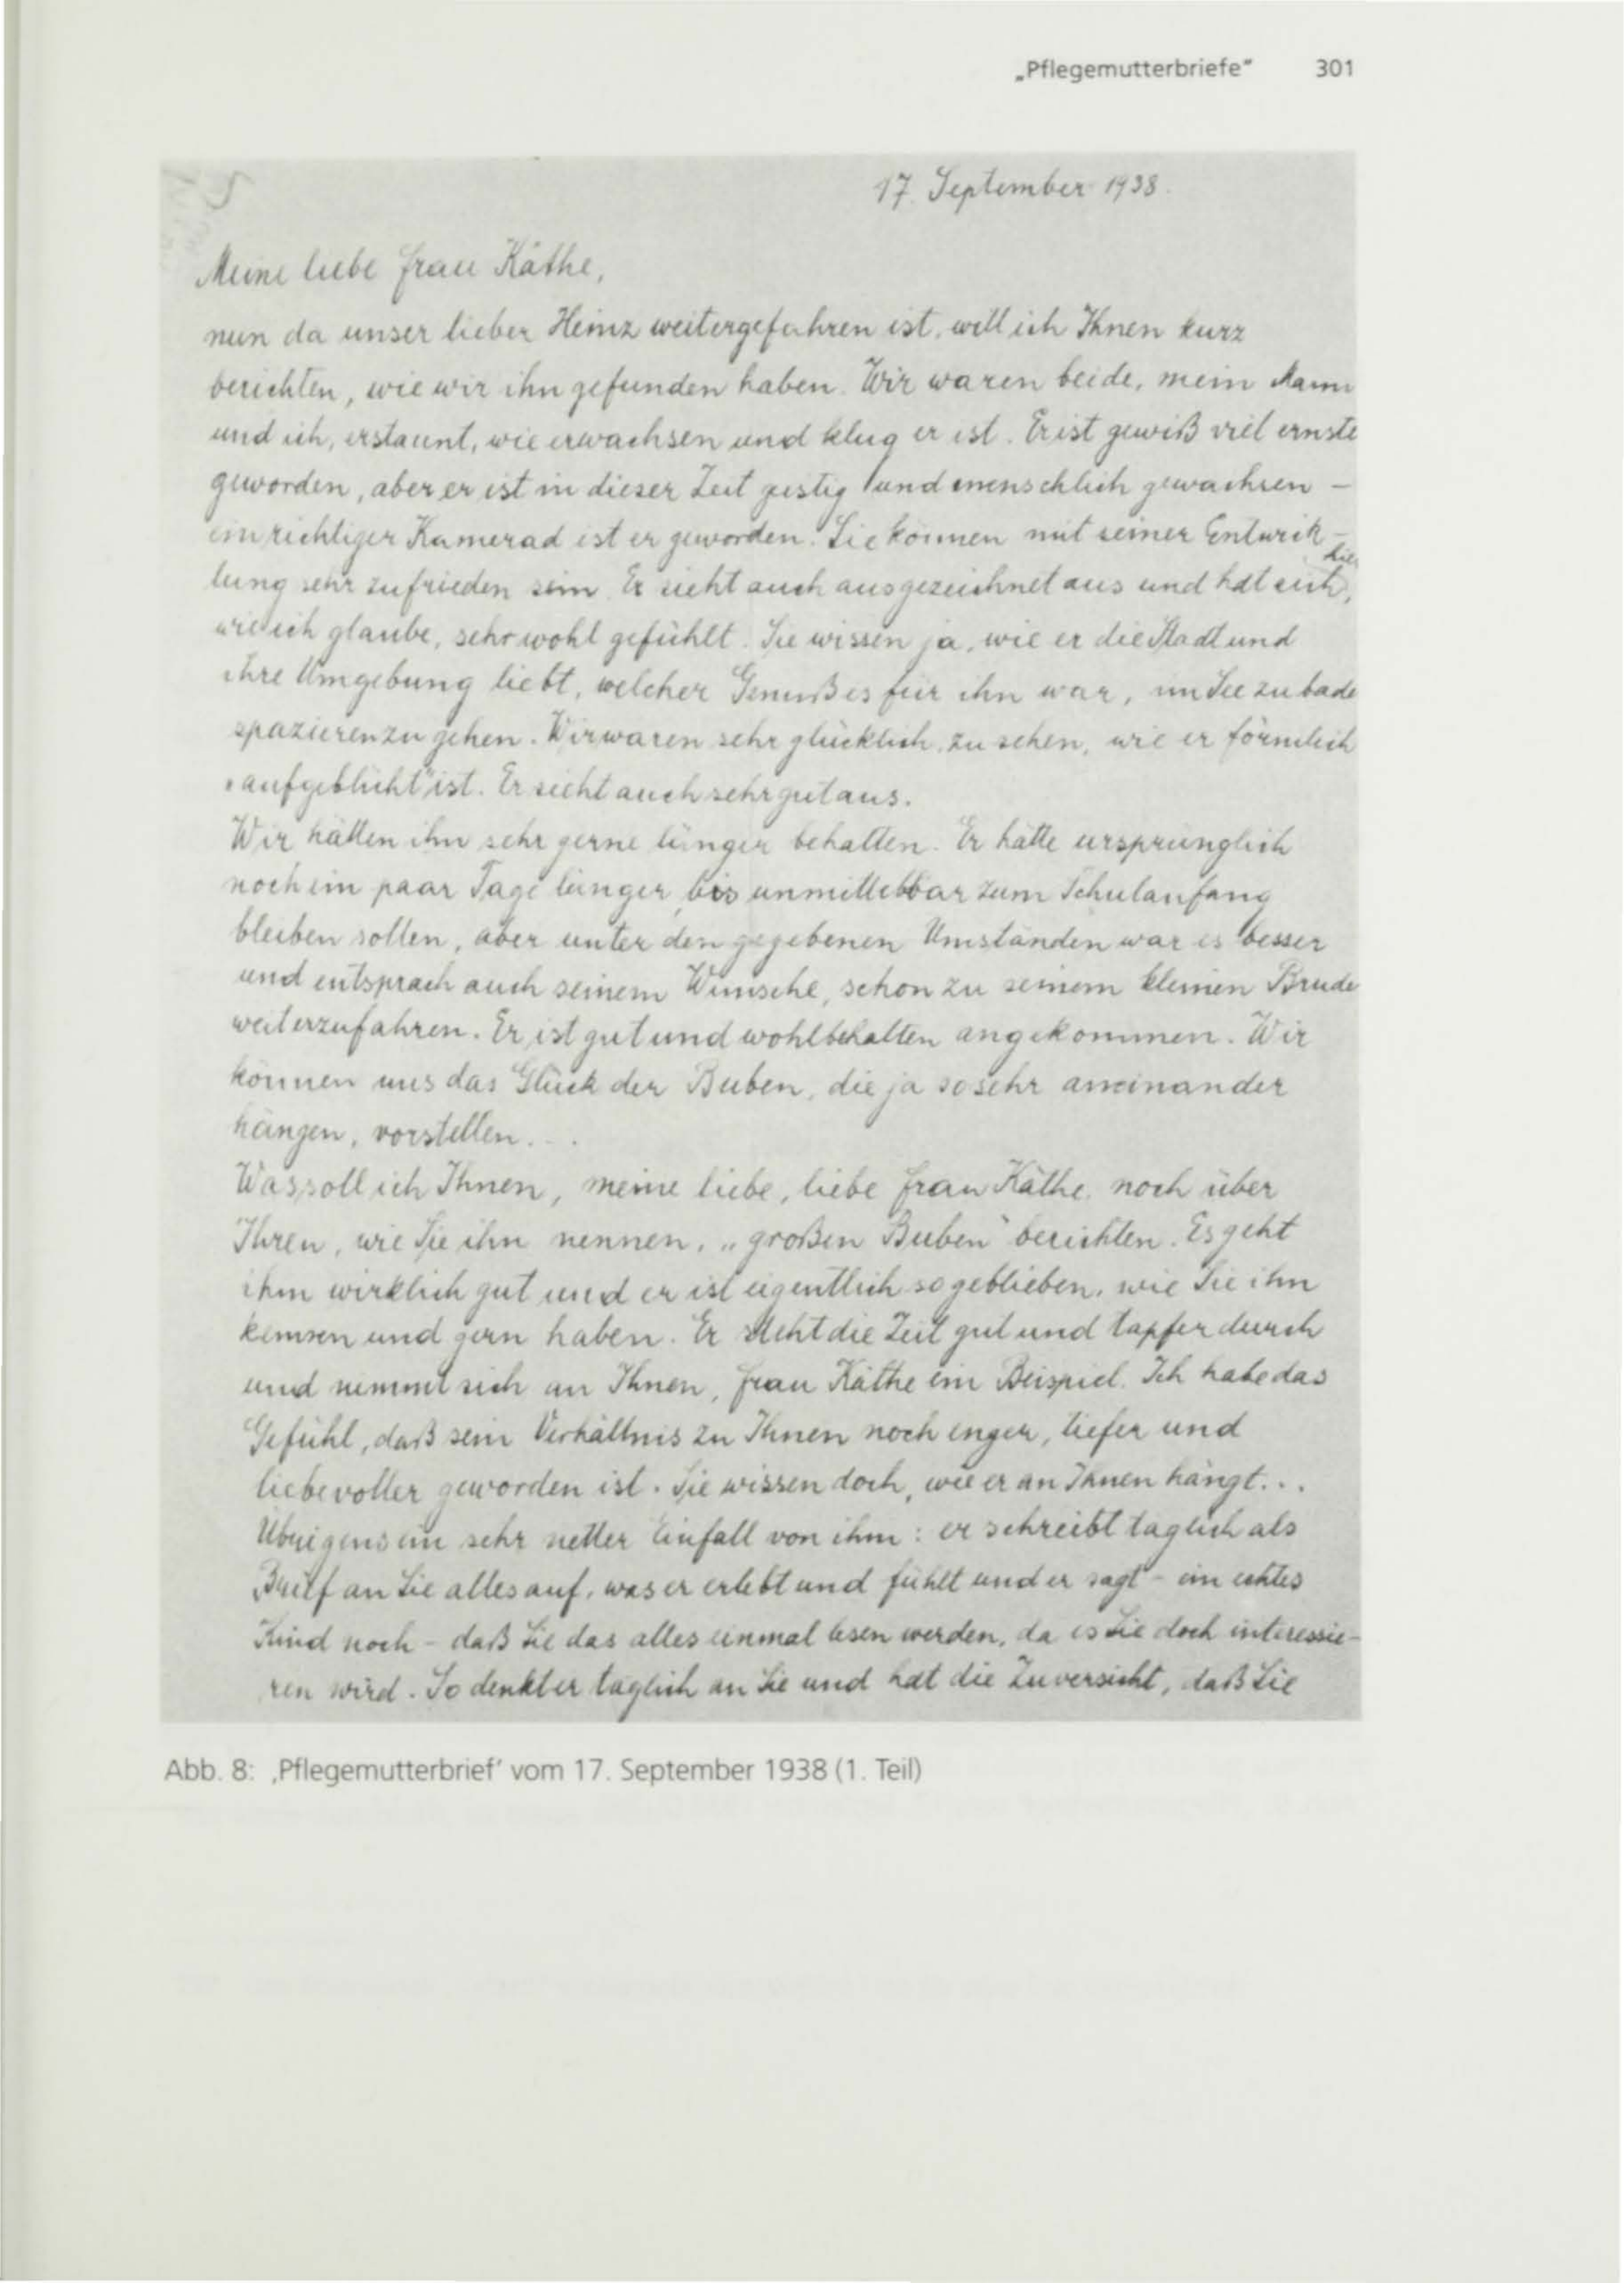 „Pflegemutterbriefe“ 301
17. September 1938.
Meine liebe Frau Käthe,
nun da unser lieber Heinz weitergefahren ist, will ich Ihnen kurz
berichten, wie wir ihn gefunden haben. Wir waren beide, mein Mann
und ich, erstaunt, wie erwachsen und klug er ist. Er ist gewiß viel ernste
geworden, aber er ist in dieser Zeit geistig und menschlich gewachsen –
ein richtiger Kamerad ist er geworden. Sie können mit seiner Entwick-
lung sehr zufrieden sein. Er sieht auch ausgezeichnet aus und hat sich hier,
wie ich glaube, sehr wohl gefühlt. Sie wissen ja, wie er die Stadt und
ihre Umgebung liebt, welcher Genuß es für ihn war, im See zu bade
spazierenzugehen. Wir waren sehr glücklich, zu sehen, wie er förmlich
„aufgeblüht“ ist. Er sieht auch sehr gut aus.
Wir hätten ihn sehr gerne länger behalten. Er hätte ursprünglich
noch ein paar Tage länger, bis unmittelbar zum Schulanfang
bleiben sollen, aber unter den gegebenen Umständen war es besser
und entsprach auch seinem Wunsche, schon zu seinem kleinen Brude
weiterzufahren. Er ist gut und wohlbehalten angekommen. Wir
können uns das Glück der Buben, die ja so sehr aneinander
hängen, vorstellen...
Was soll ich Ihnen, meine liebe, liebe Frau Käthe, noch über
Ihren, wie Sie ihn nennen, „großen Buben“ berichten. Es geht
ihm wirklich gut und er ist eigentlich so geblieben, wie Sie ihn
kennen und gern haben. Er steht die Zeit gut und tapfer durch
und nimmt sich an Ihnen, Frau Käthe ein Beispiel. Ich habe das
Gefühl, daß sein Verhältnis zu Ihnen noch enger, tiefer und
liebevoller geworden ist. Sie wissen doch, wie er an Ihnen hängt...
Übrigens ein sehr netter Einfall von ihm: er schreibt täglich als
Brief an Sie alles auf, was er erlebt und fühlt und er sagt – ein echtes
Kind noch – daß Sie das alles einmal lesen werden, da es Sie doch interessie-
ren wird. So denkt er täglich an Sie und hat die Zuversicht, daß Sie
Abb. 8: ‚Pflegemutterbrief‘ vom 17. September 1938 (1. Teil)